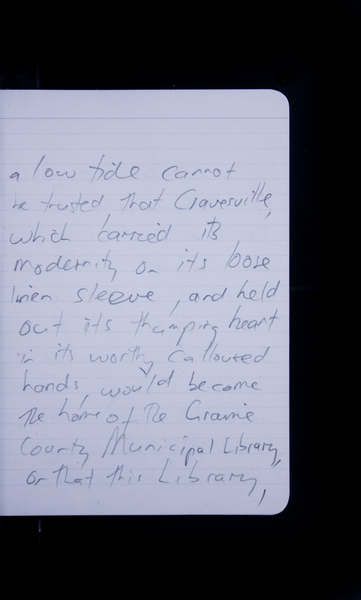 a low tide cannot
be trusted that Gravesville,
which carried its
modernity on its loose
linen sleeve, and held
out its thumping heart
in its worthy calloused
hands, would become
the home of the
County Municipal Library,
or that this Library,